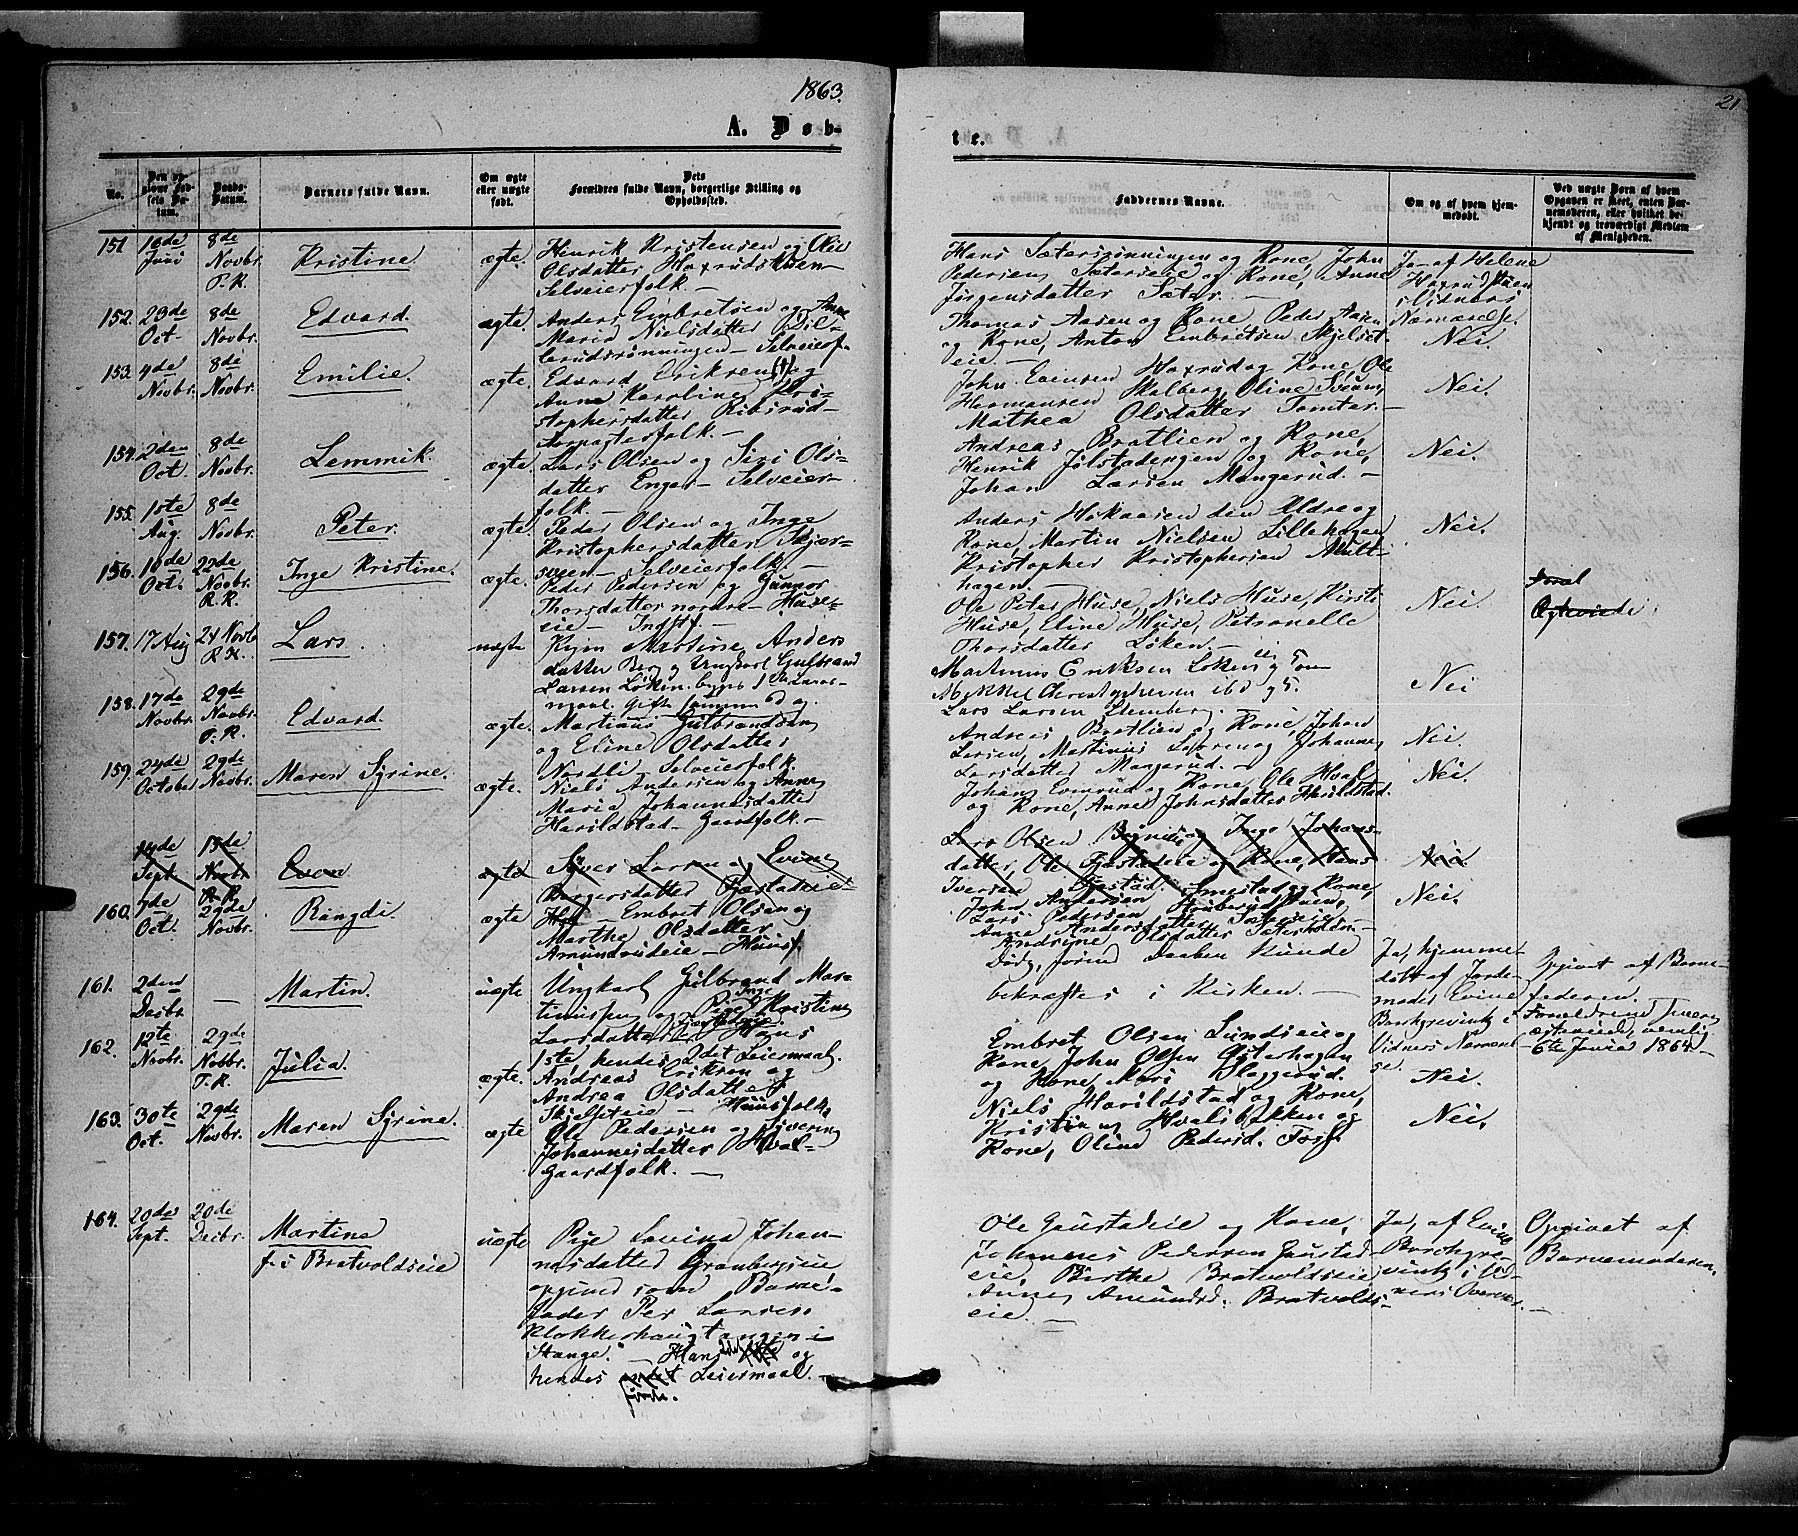 1863.
21
A. Døb-
te.
No.
Den op-
givne Fød-
sels Da-
tum.
Daabs-
Datum.
Barnets fulde Navn.
Om ægte
eller uægte
født.
Dets
Forældres fulde Navn, borgerlige Stilling og
Opholdssted.
Faddernes Navne.
Om og af hvem hjem-
medøbt.
Ved uægte Børn af hvem
Opgaven er skeet, enten Bar-
nemoderen, eller hvilket be-
kjendt og troværdigt Medlem
af Menigheden.
151. Juni
8de Novbr.
Kristine
ægte.
Henrik Kristensen og Olia
Olsdatter
Selveierfolk. —
Hans Sætersønningen og Kone, John
Pedersen Sæterseie og Kone, Anne
Jørgensdatter Sæter. —
Ja — af Helene
i Vidners
Nærværelse.
152. 29de Oct.
8de Novbr.
Edvard.
ægte.
Anders Embretsen og Anne
Marie Nielsdatter
Selveierf.
Thomas Aasen og Kone, Peder Aasen
og Kone, Anton Embretsen Skjelset-
eie. —
Nei
153. 4de Novbr.
8de Novbr.
Emilie.
ægte.
Edvard Eriksen og
Anne Karoline Kri-
stophersdatter Ribsrud —
Forpagterfolk. —
John Evensen Haxrud og Kone, Ole
Hermansen Skalberg, Oline Sveum,
Mathea Olsdatter Tomter. —
Nei.
154. 2den Oct.
8de Novbr.
Lemmik.
ægte.
Lars Olsen og Siri Ols-
datter Enger — Selveier-
folk. —
Andreas Bratlien og Kone,
Henrik Jølstadengen og Kone,
Johan Larsen Mangerud. —
Nei.
155. 1ste Aug.
8de Novbr.
Peter.
ægte.
Peder Olsen og Inge
Kristophersdatter Skjær-
sveen — Selveierfolk. —
Anders Hokaasen den Ældre og
Kone, Martin Nielsen Lillehagen
Kristopher Kristophersen Midt-
hagen —
Nei.
156. Oct.
22de Novbr.
Inge Kristine.
ægte.
Peder Pedersen og Gunnor
Thorsdatter nordre Huse-
eie — Indstf. —
Ole Peter Huse, Niels Huse, Kirsti
Huse, Eline Huse, Petronelle
Thorsdatter Løken. —
Nei.
157. 17 Aug
24 Novb
Lars.
uægte
Pigen Martine Anders
datter Berg og Ungkarl Gulbrand
Larsen Løken.
Martinus Eriksen Løken
Mikkel Christophersen
Lars Larsen Stenberg. —
Nei
158. 17de Novbr.
29de Novbr.
Edvard.
ægte.
Martinus Gulbrandsen
og Eline Olsdatter
Nordli — Selveierfolk.
Andreas Bratlien og Kone, Johan
Larsen, Martinus Løken og Johanne
Larsdatter Mangerud. —
Nei.
159. 24de October
29de Novbr.
Maren Syrine.
ægte.
Niels Andersen og Anne
Maria Johannesdatter
Harildstad — Gaardfolk. —
Johans Evinrud og Kone, Ole Hval
og Kone, Anne Johnsdatter Harildstad.
Nei.
14de Sept.
15de Novbr.
Even
ægte
Siver Larsen og Eving
Birgersdatter Fjæstadeie
Lars Olsen og Inge Johans-
datter, Ole Fjæstadeie og Kone, Hans
Iversen Fjæstad.
Nei.
160. 7de Oct.
29de Novbr.
Rangdi.
ægte
Embret Olsen og
Marthe Olsdatter
Amundrudeie — Huusf.
John Andersen Smestad og Kone,
Lars Pedersen
Anne Andersdatter
Andrine Olsdatter Sæterholen —
Nei.
161. 2den Decbr.
—
Martin.
uægte
Ungkarl Gulbrand Mar-
tinussen og Pige Inge Kristine
Larsdatter Hans
1ste hendes 2det Leiermaal.
Død, forend Daaben kunde
bekræftes i Kirken. —
Ja, hjemme-
døbt af Jorde-
moder Evine
Borchgrevink i
Vidners Nærværel-
se.
Opgivet af Barne-
faderen. —
Forældrene
ægteviede, nemlig
— 6te Junia 1864 —
162. 12te Novbr.
29de Novbr.
Julia.
ægte.
Andreas Eriksen og
Andrea Olsdatter
Skjelseteie — Huusfolk,
Embret Olsen Lundseie og
Kone, John Olsen Østerhagen
og Kone, Mari Slaggerud.
Nei.
163. 30te Oct.
29de Novbr.
Maren Syrine.
ægte
Ole Pedersen og Siverine
Johannesdatter Hval —
Gaardfolk. —
Niels Harildstad og Kone,
Kristian Hvalsløkken og
Kone, Oline Pedersd. Fosf.
Nei.
164. 20de Sept.
20de Decbr.
Martina
f. i Bratvoldseie
uægte
Pige Lovina Johan-
nesdatter Granbergseie
opgivet som Barne-
fader Per Larsen
Klokkerhaugtangen i
Stange. — Hans 2det og
hendes første Leiermaal. —
Ole Gaustadeie og Kone,
Johannes Pedersen Gaustad-
eie, Birthe Bratvoldseie
Anne Amundsd. Bratvolds-
eie. —
Ja, af Evine
Borchgre-
vink i Vid-
ners Overvær.
Opgivet af
Barnemoderen.
—